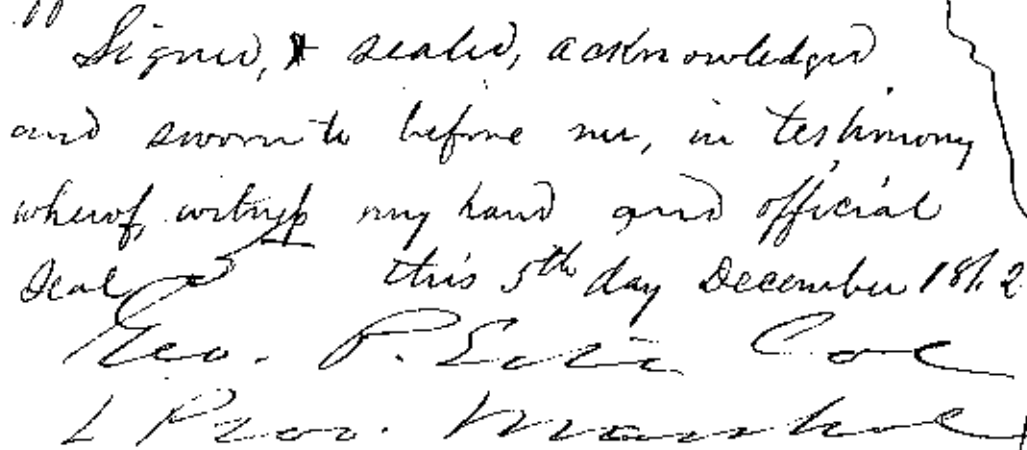 Signed, & sealed, acknowledged
and sworn to before me, in testimony
whereof, witness my hand and official
Seal this 5th day December 1862
Geo. P. Col
Pro. Marshal